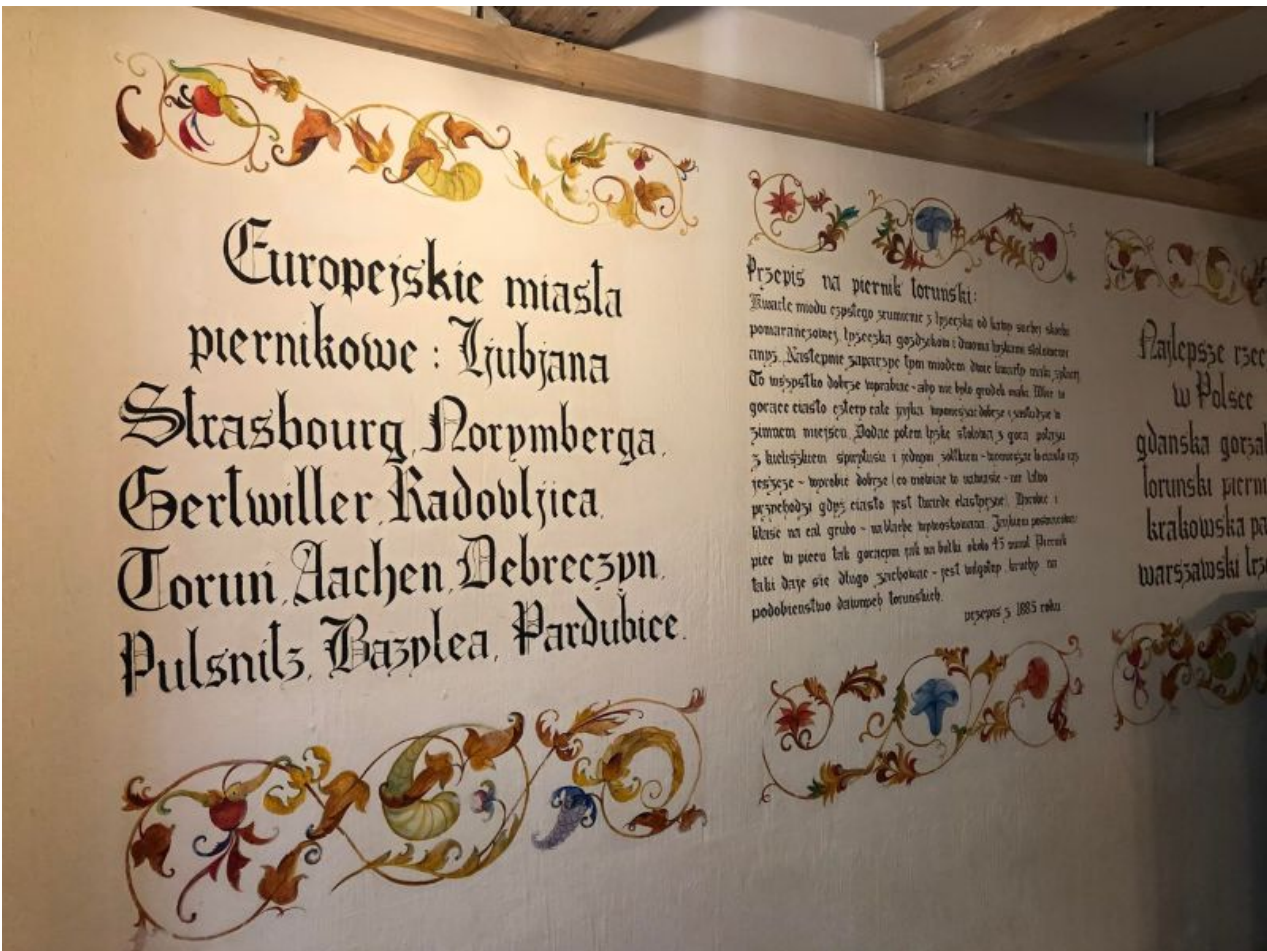 Europejskie miasta
piernikowe : Ljubjana
Strasbourg, Norymberga,
Gertwiller, Radovljica,
Toruń, Aachen, Debreczyn,
Pulsnitz, Bazylea, Pardubice.
Przepis na piernik toruński:
Kwartę miodu czystego zrumienić z łyżeczką od kawy suchej skórki
pomarańczowej, łyżeczką goździków i dwoma łyżkami stołowemi
anyż. Następnie zaparzyć tym miodem dwie kwarty mąki żytniej
To wszystko dobrze wyrabiać - aby nie było grudek mąki. Wbić w
gorące ciasto cztery całe jajka wymieszać dobrze i zastudzić w
zimnem miejscu. Dodać potem łyżkę stołową z górą potażu
z kieliszkiem spirytusu i jednym żółtkiem - wymieszać to ciasto raz
jeszcze - wyrobić dobrze (co mówiąc to nawiasie - nie łatwo
przychodzi gdyż ciasto jest twarde elastyczne). Wyrobić i
kłaść na cal grubo - na blachę wywoskowaną.
piec w piecu tak gorącym jak na bułki około 45 minut. Piernik
taki daje się długo zachować - jest wilgotny, kruchy na
podobieństwo dawnych toruńskich.
przepis z 1885 roku
Najlepsze
w Polsce
gdańska
toruński
krakowska
warszawski